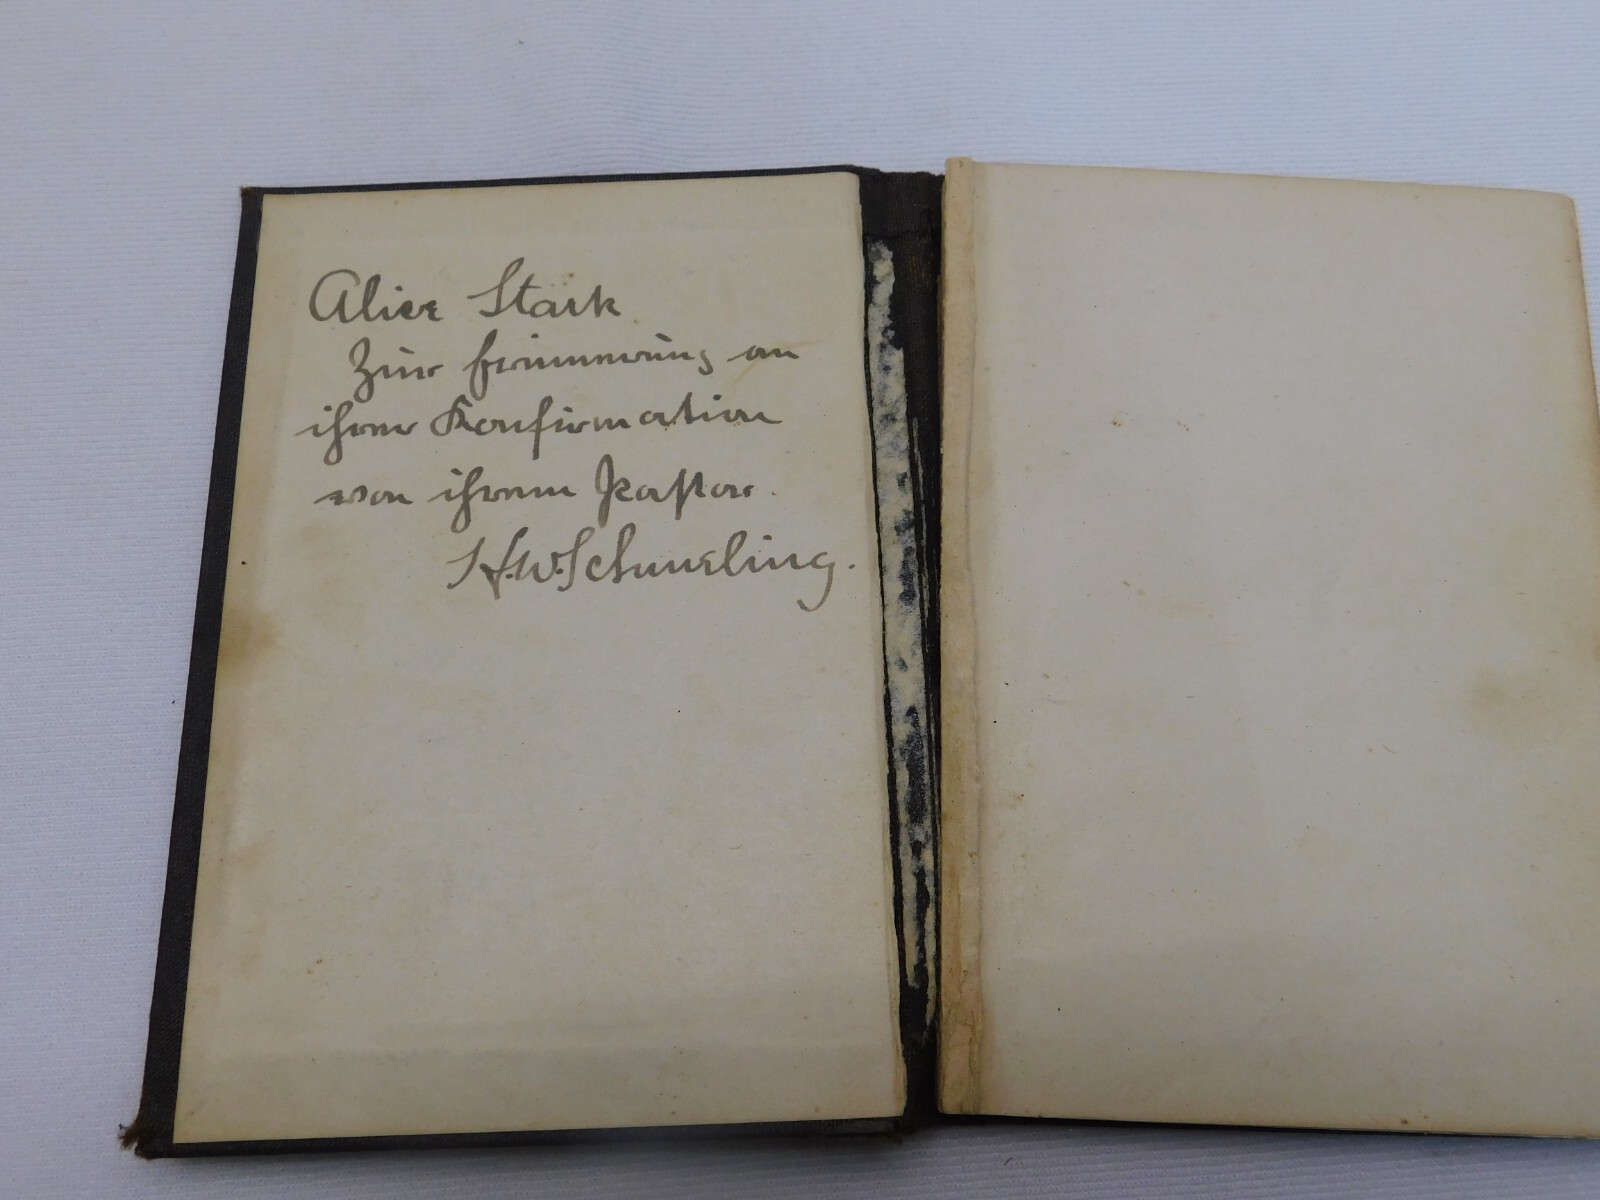 Alice Stark
Zur Erinnerung an
ihrer Konfirmation
von ihrem Pastor.
H.W. Schmeling.